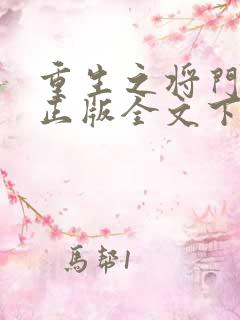 重生之将門
正版全文下
馬幫1